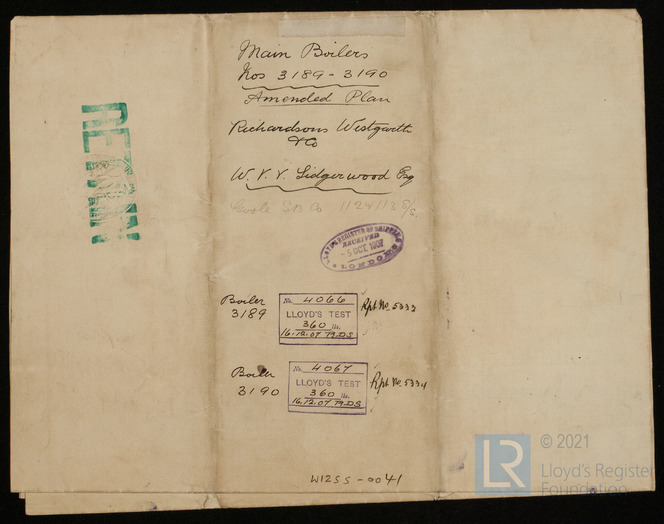 Main Boilers
Nos 3189-3190
Amended Plan
Richardsons Westgarth
& Co
W. V. V. Lidgerwood Esq
Goole S.B. Co 112 & 113 S/S.
RETURN
LLOYD'S REGISTER OF SHIPPING
RECEIVED
LONDON
Boiler
3189
No. 4066
LLOYD'S TEST
360 lb.
16.12.07
Rpt No. 5333
Boiler
3190
No. 4067
LLOYD'S TEST
360 lb.
16.12.07
Rpt No. 5334
W1255-0041
LR
© 2021
Lloyd's Register
Foundation